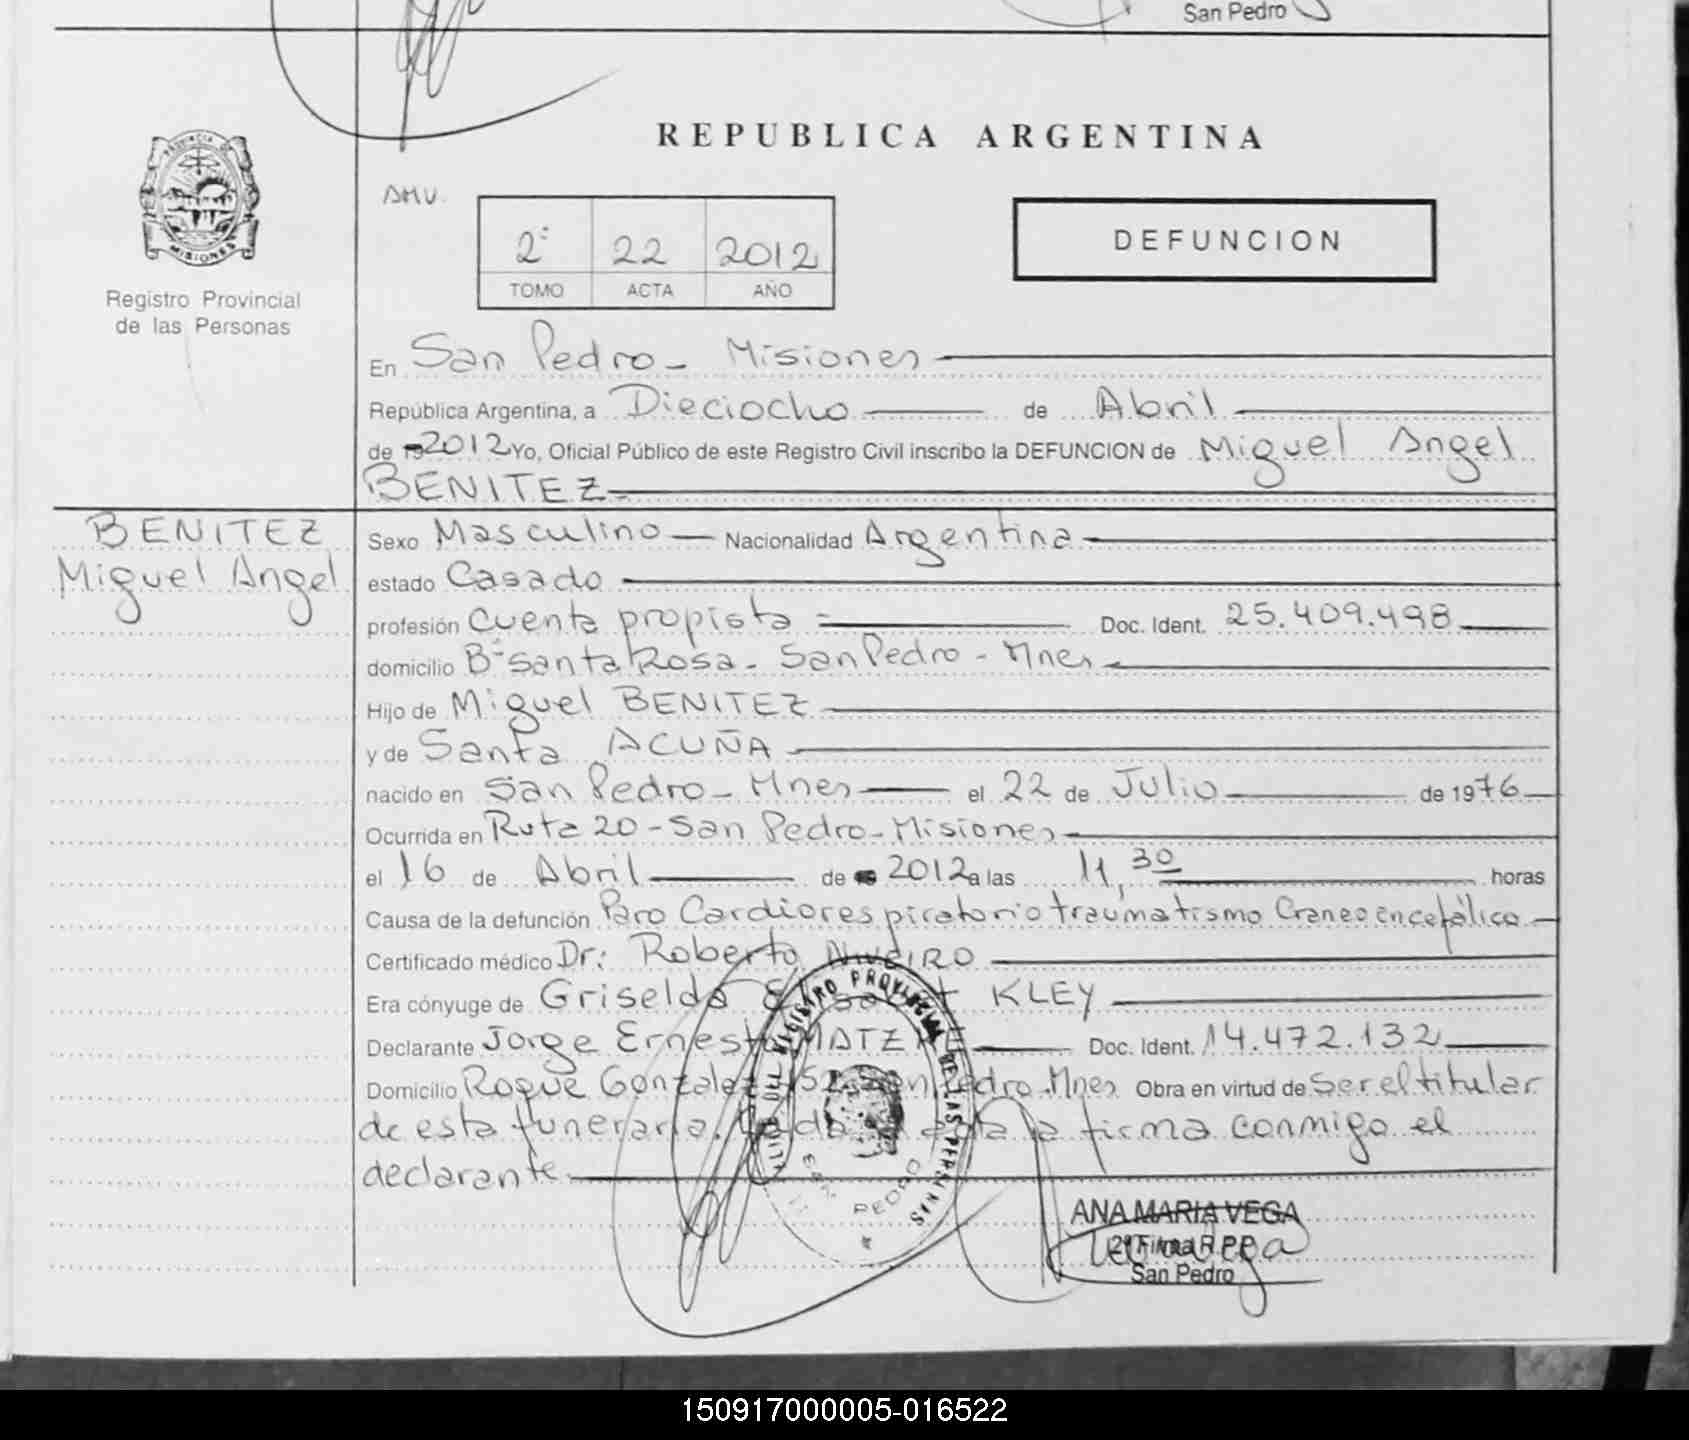 San Pedro
PROVINCIA DE
MISIONES
Registro Provincial
de las Personas
REPUBLICA ARGENTINA
AMV.
2º 22 2012
TOMO ACTA AÑO
DEFUNCION
En San Pedro - Misiones
República Argentina, a Dieciocho de Abril
de 2012 Yo, Oficial Público de este Registro Civil inscribo la DEFUNCION de Miguel Angel
BENITEZ
BENITEZ
Miguel Angel
Sexo Masculino Nacionalidad Argentina
estado Casado
profesión Cuenta propista Doc. Ident. 25.409.498
domicilio Bº Santa Rosa - San Pedro - Mnes
Hijo de Miguel BENITEZ
y de Santa ACUÑA
nacido en San Pedro - Mnes el 22 de Julio de 1976
Ocurrida en Ruta 20 - San Pedro - Misiones
el 16 de Abril de 2012 a las 11,30 horas
Causa de la defunción Paro Cardiorespiratorio traumatismo Craneoencefálico
Certificado médico Dr: Roberto NIVEIRO
Era cónyuge de Griselda KLEY
Declarante Jorge Ernesto Doc. Ident. 14.472.132
Domicilio Roque Gonzalez San Pedro - Mnes Obra en virtud de Ser el titular
de esta funeraria. Leída el acta la firma conmigo el
declarante
REGISTRO PROVINCIAL DE LAS PERSONAS
SAN PEDRO
ANA MARIA VEGA
2º Firma R.P.P.
San Pedro
150917000005-016522